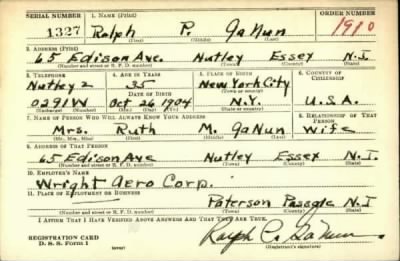 SERIAL NUMBER 1. NAME (Print) ORDER NUMBER
1327 Ralph P. GaNun 1980
2. ADDRESS (Print)
65 Edison Ave. Nutley Essex N.J.
(Number and street or R. F. D. number) (Town) (County) (State)
3. TELEPHONE 4. AGE IN YEARS 5. PLACE OF BIRTH 6. COUNTRY OF CITIZENSHIP
Nutley 2 35 New York City
DATE OF BIRTH (Town or county)
0291W Oct 26 1904 N.Y. U.S.A.
(Exchange) (Number) (Mo.) (Day) (Yr.) (State or country)
7. NAME OF PERSON WHO WILL ALWAYS KNOW YOUR ADDRESS 8. RELATIONSHIP OF THAT PERSON
Mrs. Ruth M. GaNun Wife
(Mr., Mrs., Miss) (First) (Middle) (Last)
9. ADDRESS OF THAT PERSON
65 Edison Ave Nutley Essex N.J.
(Number and street or R. F. D. number) (Town) (County) (State)
10. EMPLOYER'S NAME
Wright Aero Corp.
11. PLACE OF EMPLOYMENT OR BUSINESS
Paterson Passaic N.J
(Number and street or R. F. D. number) (Town) (County) (State)
I AFFIRM THAT I HAVE VERIFIED ABOVE ANSWERS AND THAT THEY ARE TRUE.
REGISTRATION CARD
D. S. S. Form 1 Ralph P. GaNun
(Registrant's signature)